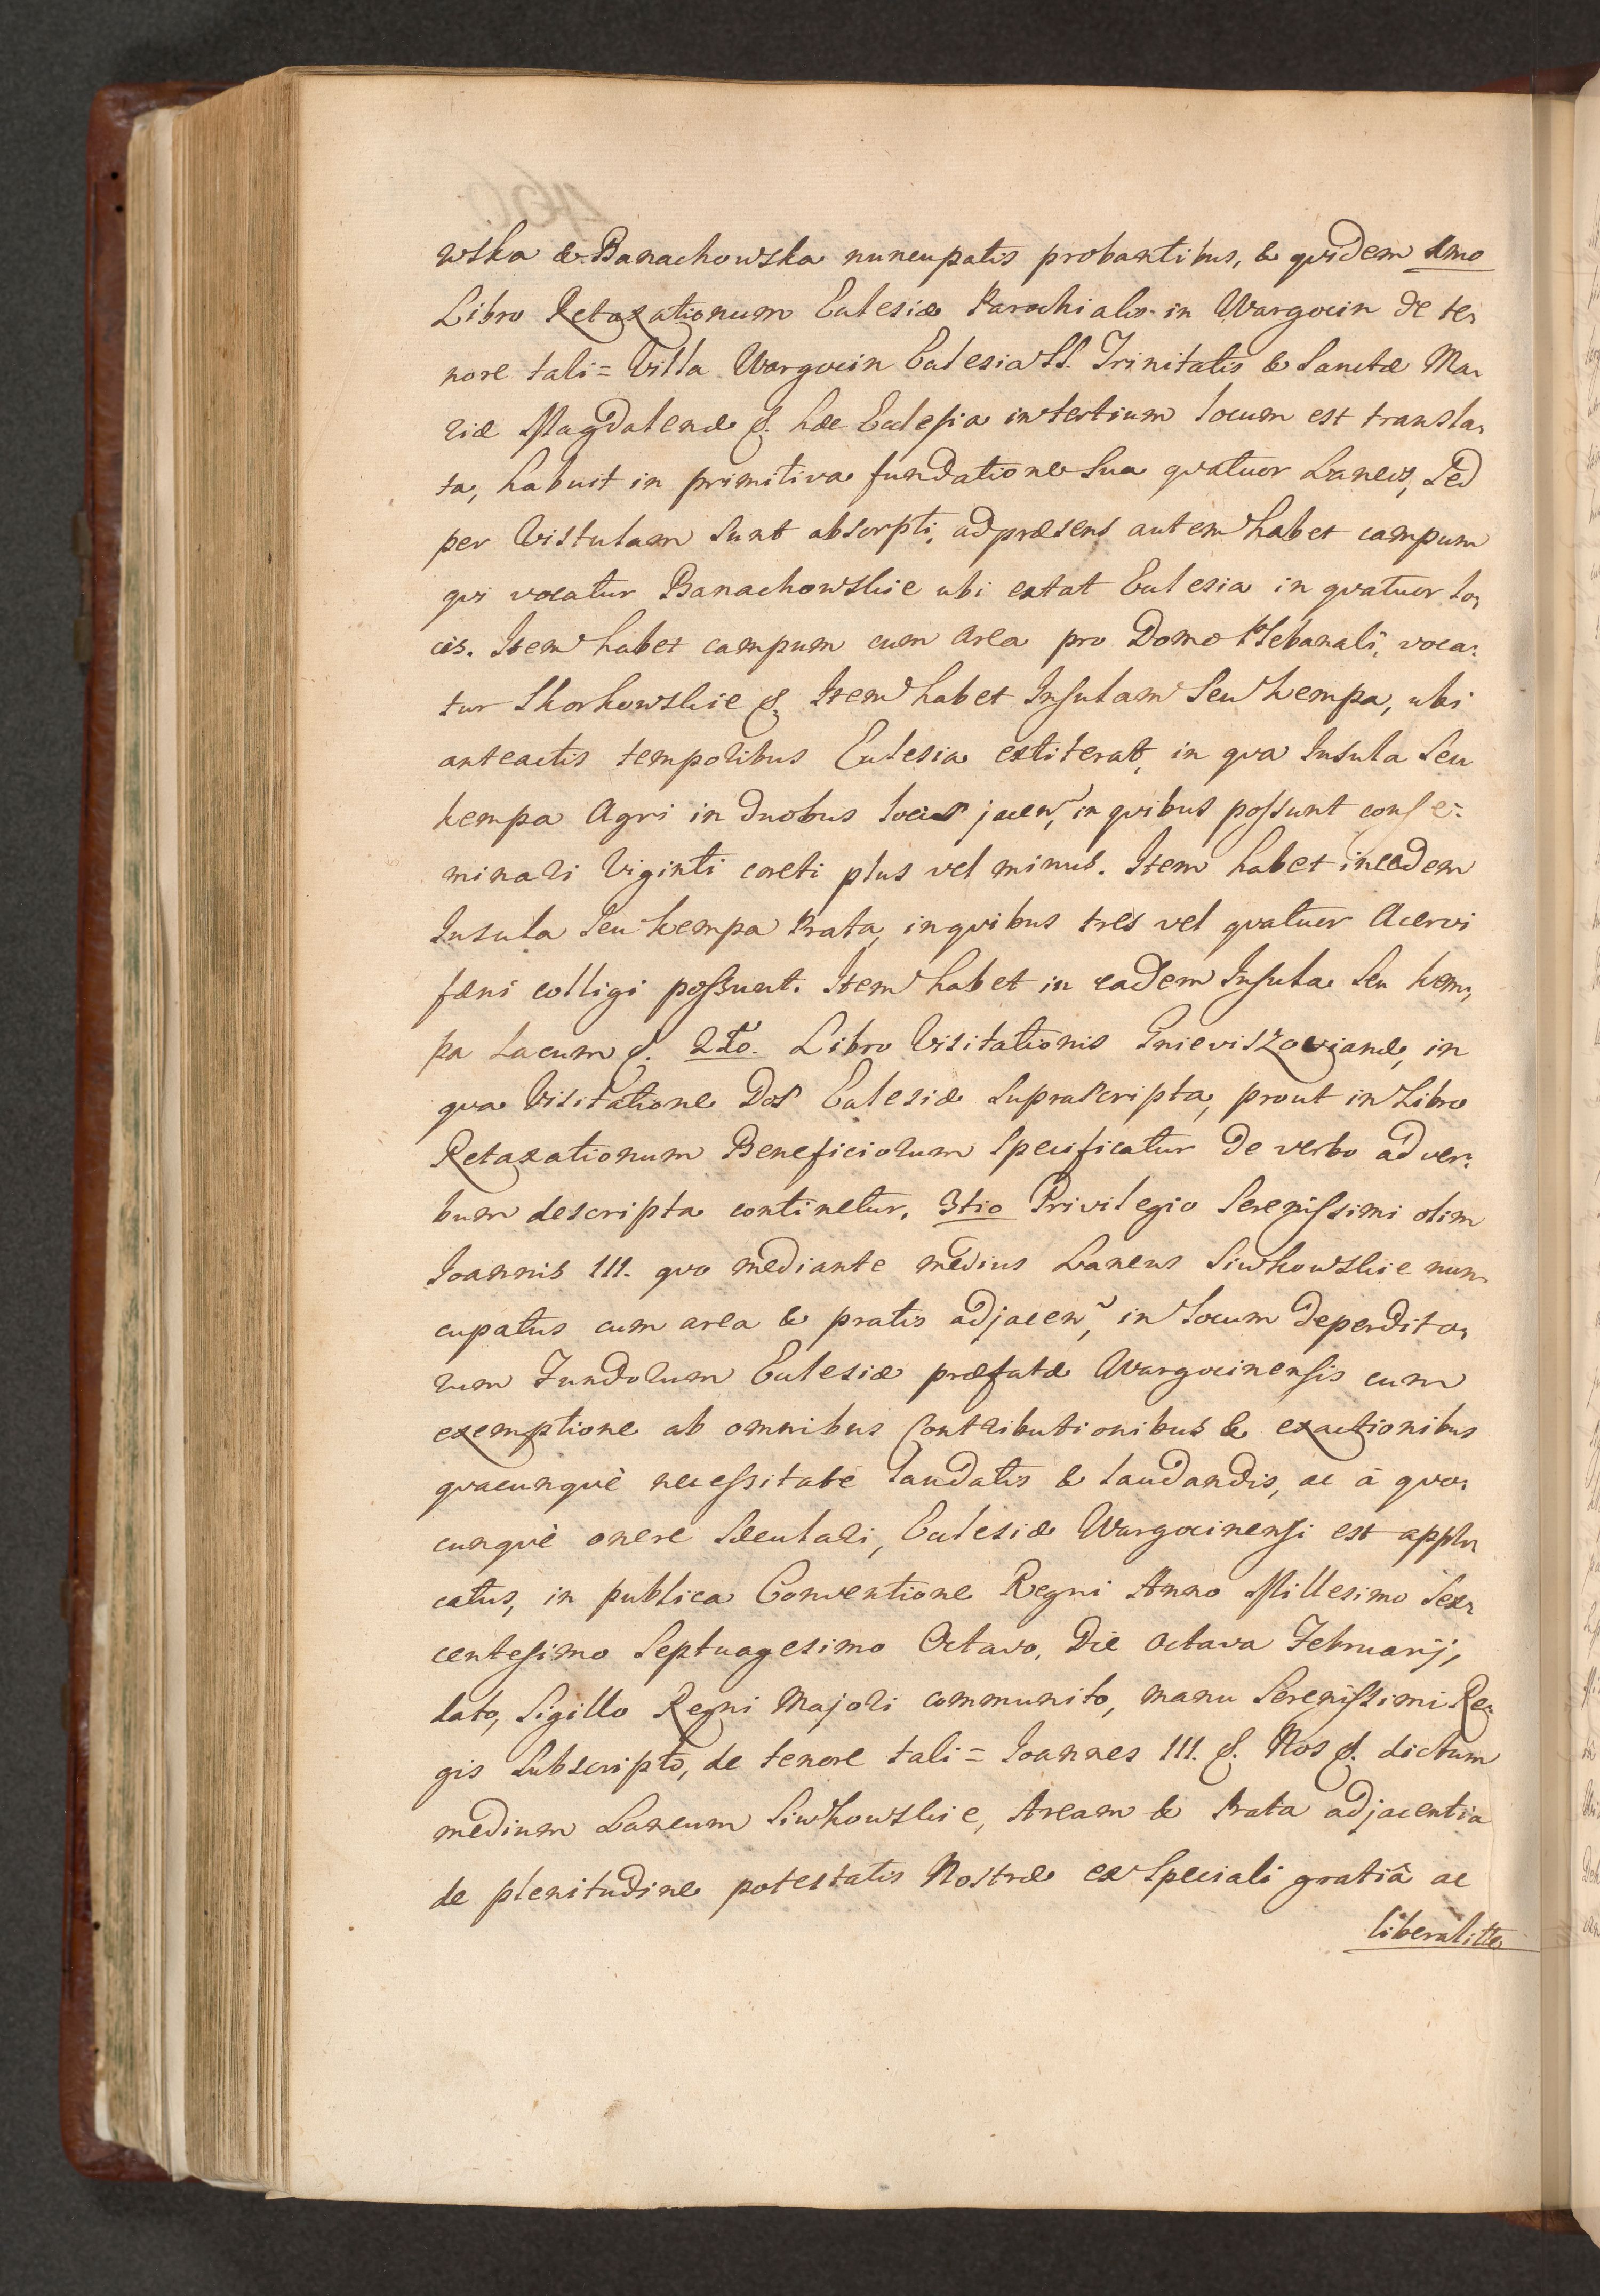 wska & Banachowska nuncupatis probantibus, & qvidem 1mo
Libro Retaxationum Eclesiæ Parochialis in Wargocin de te,
nore tali = Villa Wargocin Eclesia SS. Trinitatis & Sanctæ Ma,
riæ Magdalenæ &. hæc Eclesia in tertium locum est transla,
ta, habuit in primitiva fundatione sua qvatuor Laneos, sed
per Vistulam sunt absorpti, ad præsens autem habet campum
qvi vocatur Banachowskie ubi extat Eclesia in qvatuor lo,
cis. Item habet campum cum area pro Domo Plebanali, voca,
tur Skorkowskie &. Item habet Insulam seu kempa, ubi
anteactis temporibus Eclesia extiterat, in qva Insula seu
kempa Agri in duobus locis jacen, in qvibus possunt conse,
minari Viginti coreti plus vel minus. Item habet in eadem
Insula seu kempa Prata, in qvibus tres vel qvatuor Acervi
fæni colligi possunt. Item habet in eadem Insula seu kem,
pa Lacum &. 2do. Libro Visitationis Gnieviszovianæ, in
qva Visitatione Dos Eclesiæ suprascripta, prout in Libro
Retaxationum Beneficiorum specificatur de verbo ad ver,
bum descripta continetur. 3tio Privilegio Serenissimi olim
Joannis III. qvo mediante medius Laneus Siwkowskie nun,
cupatus cum area & pratis adjacen, in locum deperdito,
rum Fundorum Eclesiæ præfatæ Wargocinensis cum
exemptione ab omnibus Contributionibus & exactionibus
qvacunqvè necessitate laudatis & laudandis, ac à qvo,
cunqvè onere sæculari, Eclesiæ Wargocinensi est appli,
catus, in publica Conventione Regni Anno Millesimo Sex,
centesimo Septuagesimo Octavo, Die Octava Februarij,
dato, Sigillo Regni Majori communito, manu Serenissimi Re,
gis subscripto, de tenore tali = Joannes III. &. Nos &. dictum
medium Laneum Siwkowskie, Aream & Prata adjacentia
de plenitudine potestatis Nostræ ex Speciali gratiâ ac
liberalitte